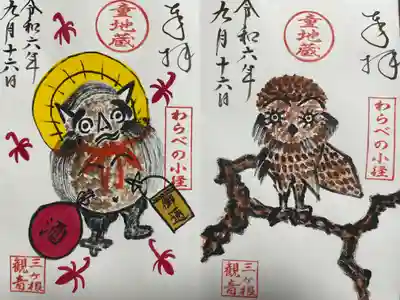 奉拝
童地蔵
令和六年
九月十六日
わらべの小径
御通
三ヶ根
観音
奉拝
童地蔵
令和六年
九月十六日
わらべの小径
三ヶ根
観音